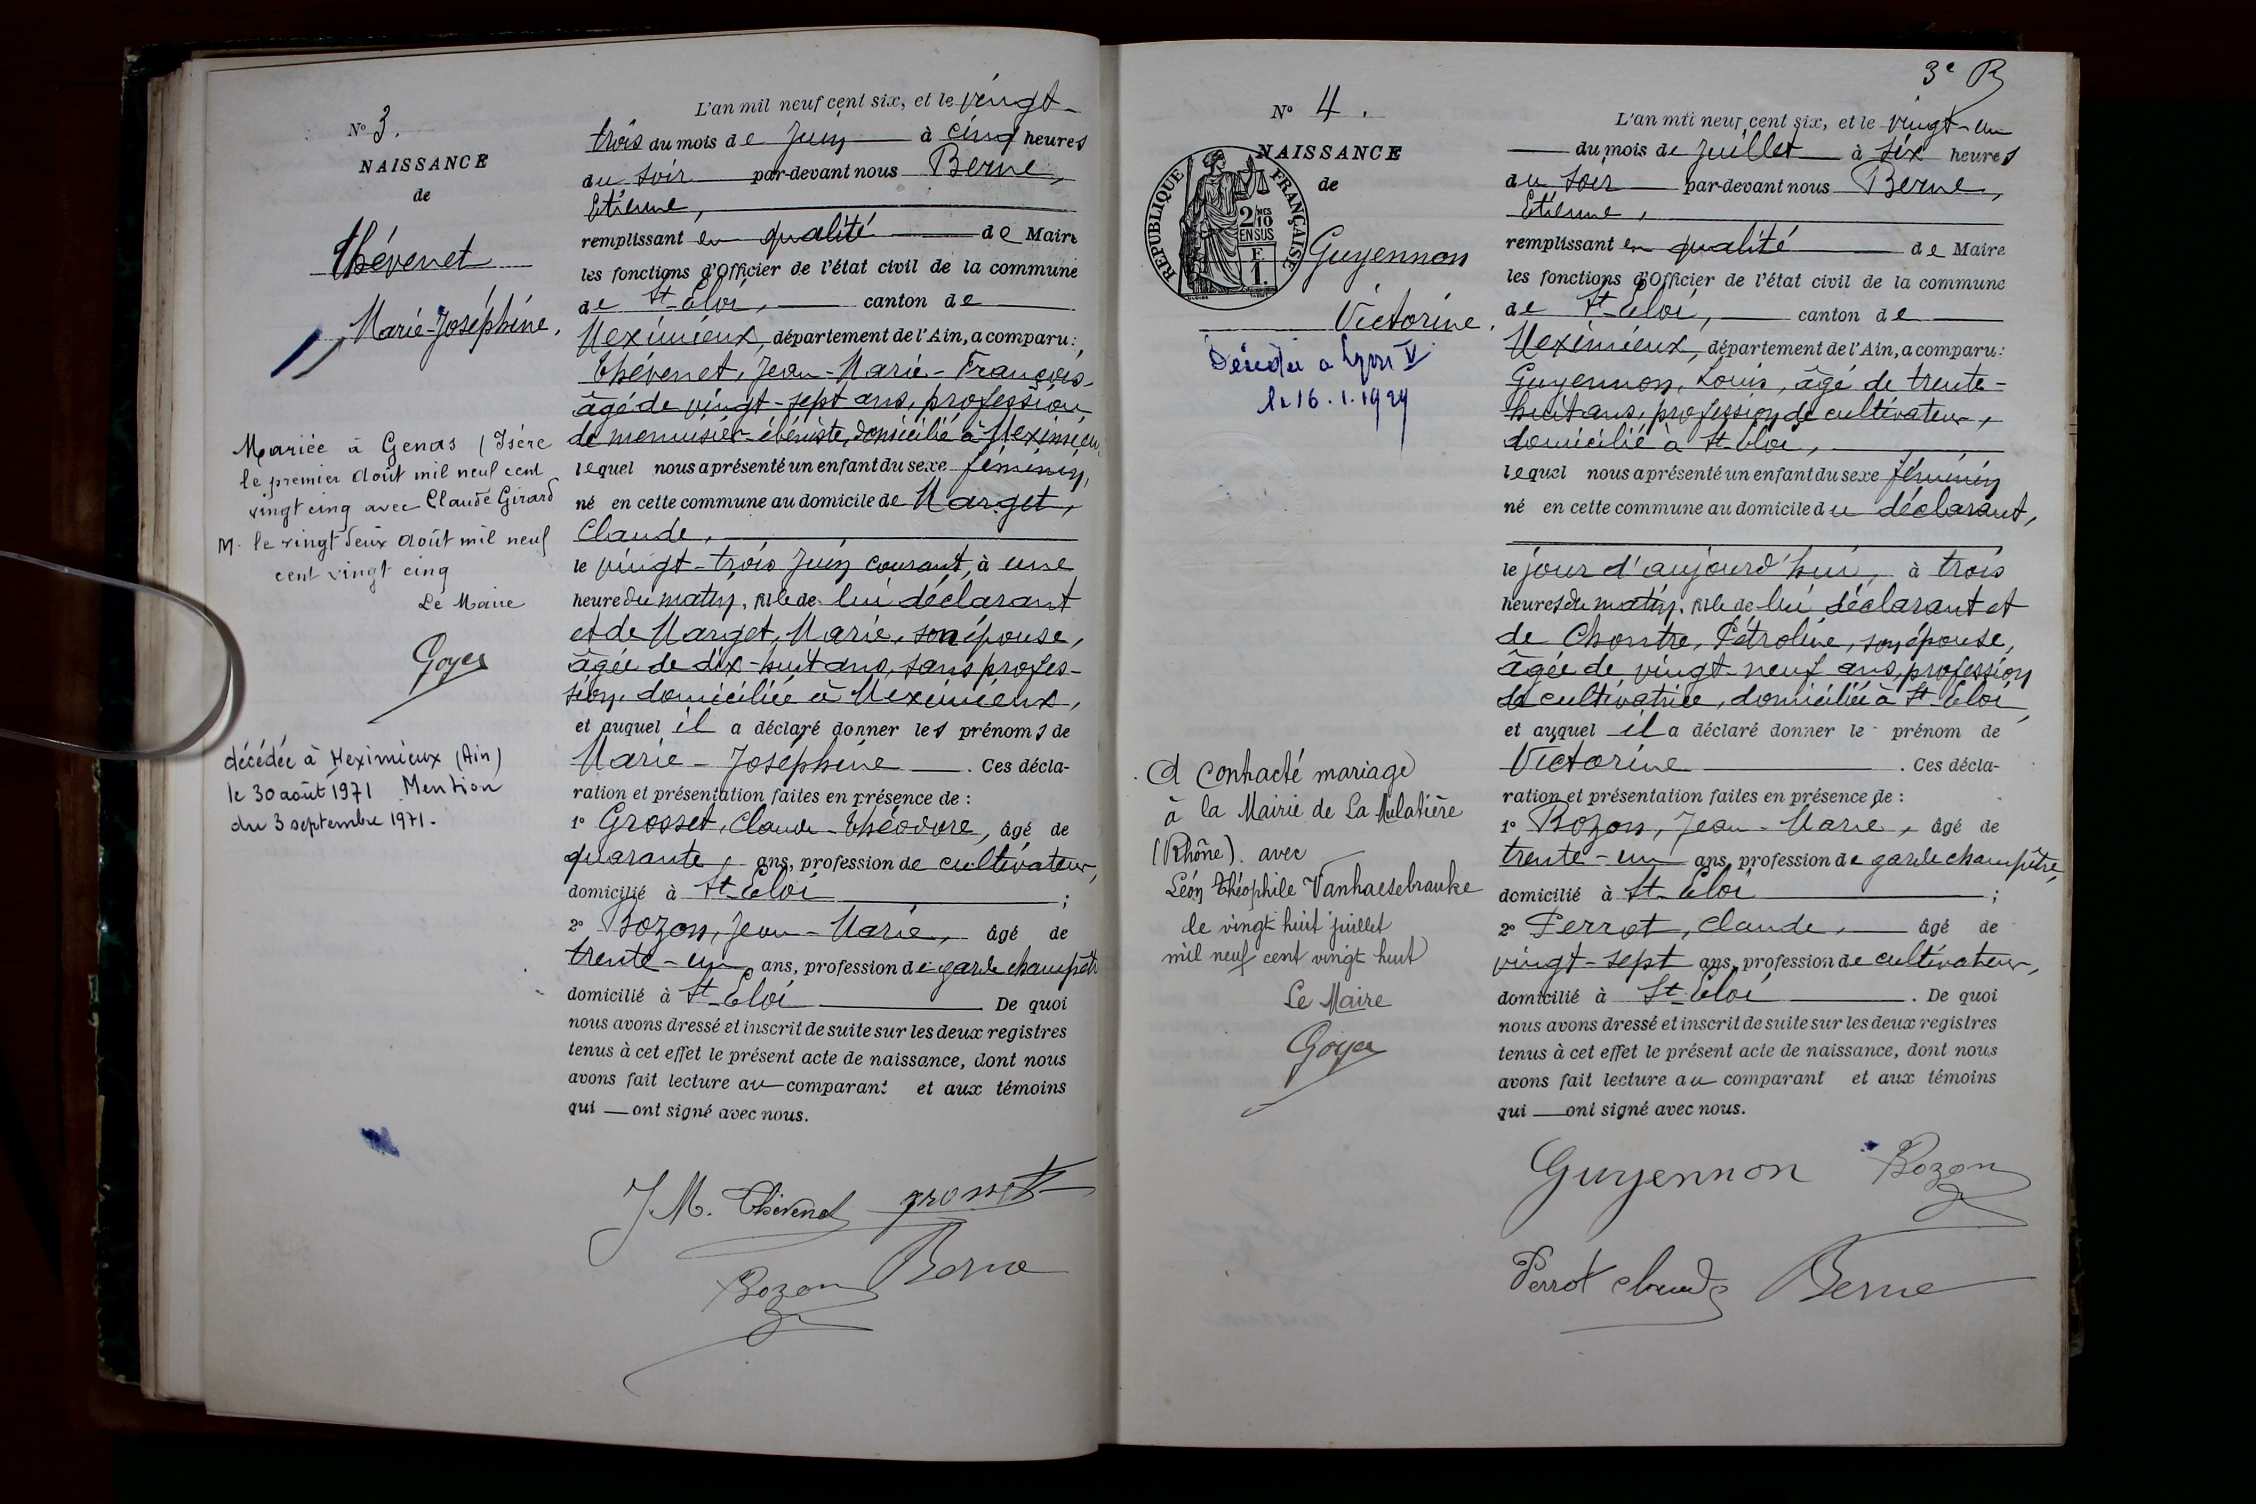 N° 3.
NAISSANCE
de
Thévenet
Marie-Joséphine.
Mariée à Genas (Isère
le premier Août mil neuf cent
vingt cinq avec Claude Girard
M. le vingt deux Août mil neuf
cent vingt cinq
Le Maire
Goyer
décédée à Meximieux (Ain)
le 30 août 1971 Mention
du 3 septembre 1971.
L'an mil neuf cent six, et le vingt-
trois du mois de Juin à cinq heures
du soir par-devant nous Berne,
Etienne,
remplissant en qualité de Maire
les fonctions d'Officier de l'état civil de la commune
de St-Eloi, canton de
Meximieux, département de l'Ain, a comparu:
Thévenet, Jean-Marie-François,
âgé de vingt-sept ans, profession
de menuisier-ébéniste, domicilié à Meximieux
lequel nous a présenté un enfant du sexe féminin,
né en cette commune au domicile de Marget,
Claude,
le vingt-trois Juin courant, à une
heure du matin, fille de lui déclarant
et de Marget, Marie, son épouse,
âgée de dix-huit ans, sans profes-
sion, domiciliée à Meximieux,
et auquel il a déclaré donner les prénoms de
Marie-Joséphine. Ces décla-
ration et présentation faites en présence de :
1° Grosset, Claude-Théodore, âgé de
quarante, ans, profession de cultivateur,
domicilié à St-Eloi ;
2° Bozon, Jean-Marie, âgé de
trente-un ans, profession de garde champêtre
domicilié à St-Eloi De quoi
nous avons dressé et inscrit de suite sur les deux registres
tenus à cet effet le présent acte de naissance, dont nous
avons fait lecture au comparant et aux témoins
qui ont signé avec nous.
J M. Thévenet grosset
Bozon Berne
3e B
N° 4.
NAISSANCE
de
RÉPUBLIQUE FRANÇAISE
2/10MES
EN SUS
F
1.
Guyennon
Victorine.
Décédée a Lyon V
le 16.1.1929
a contracté mariage
à la Mairie de La Mulatière
(Rhône). avec
Léon Théophile Vanhaesebrauke
le vingt huit juillet
mil neuf cent vingt huit
Le Maire
Goyer
L'an mil neuf cent six, et le vingt-un
du mois de Juillet à six heures
du soir par-devant nous Berne,
Etienne,
remplissant en qualité de Maire
les fonctions d'Officier de l'état civil de la commune
de St-Eloi, canton de
Meximieux, département de l'Ain, a comparu:
Guyennon, Louis, âgé de trente-
huit ans, profession de cultivateur,
domicilié à St-Eloi,
lequel nous a présenté un enfant du sexe féminin
né en cette commune au domicile du déclarant,
le jour d'aujourd'hui, à trois
heures du matin, fille de lui déclarant et
de Chontre, Pétroline, son épouse,
âgée de vingt-neuf ans, profession
de cultivatrice, domiciliée à St-Eloi,
et auquel il a déclaré donner le prénom de
Victorine. Ces décla-
ration et présentation faites en présence de :
1° Bozon, Jean-Marie, âgé de
trente-un ans, profession de garde champêtre,
domicilié à St-Eloi ;
2° Perrot, Claude, âgé de
vingt-sept ans, profession de cultivateur,
domicilié à St-Eloi. De quoi
nous avons dressé et inscrit de suite sur les deux registres
tenus à cet effet le présent acte de naissance, dont nous
avons fait lecture au comparant et aux témoins
qui ont signé avec nous.
Guyennon Bozon
Perrot Claude Berne